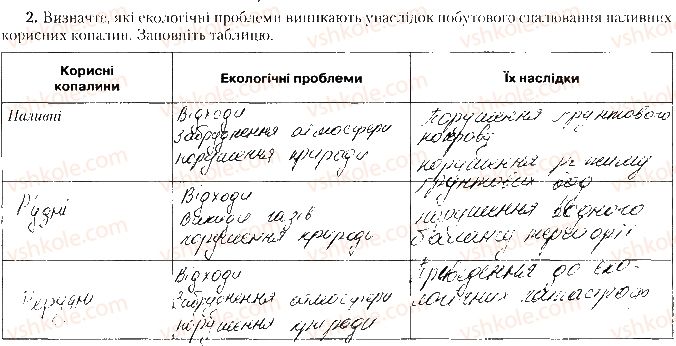 2. Визначте, які екологічні проблеми виникають унаслідок побутового спалювання паливних
корисних копалин. Заповніть таблицю.
Корисні
копалини
Екологічні проблеми
Їх наслідки
Паливні
Відходи
Забруднення атмосфери
порушення природи
Порушення грунтового
покрову
порушення режиму
грунтових вод
Рудні
Відходи
Викиди газів
порушення природи
порушення водного
балансу території
Нерудні
Відходи
Забруднення атмосфери
порушення природи
Приведення до еко-
логічних катастроф
vshkole.com